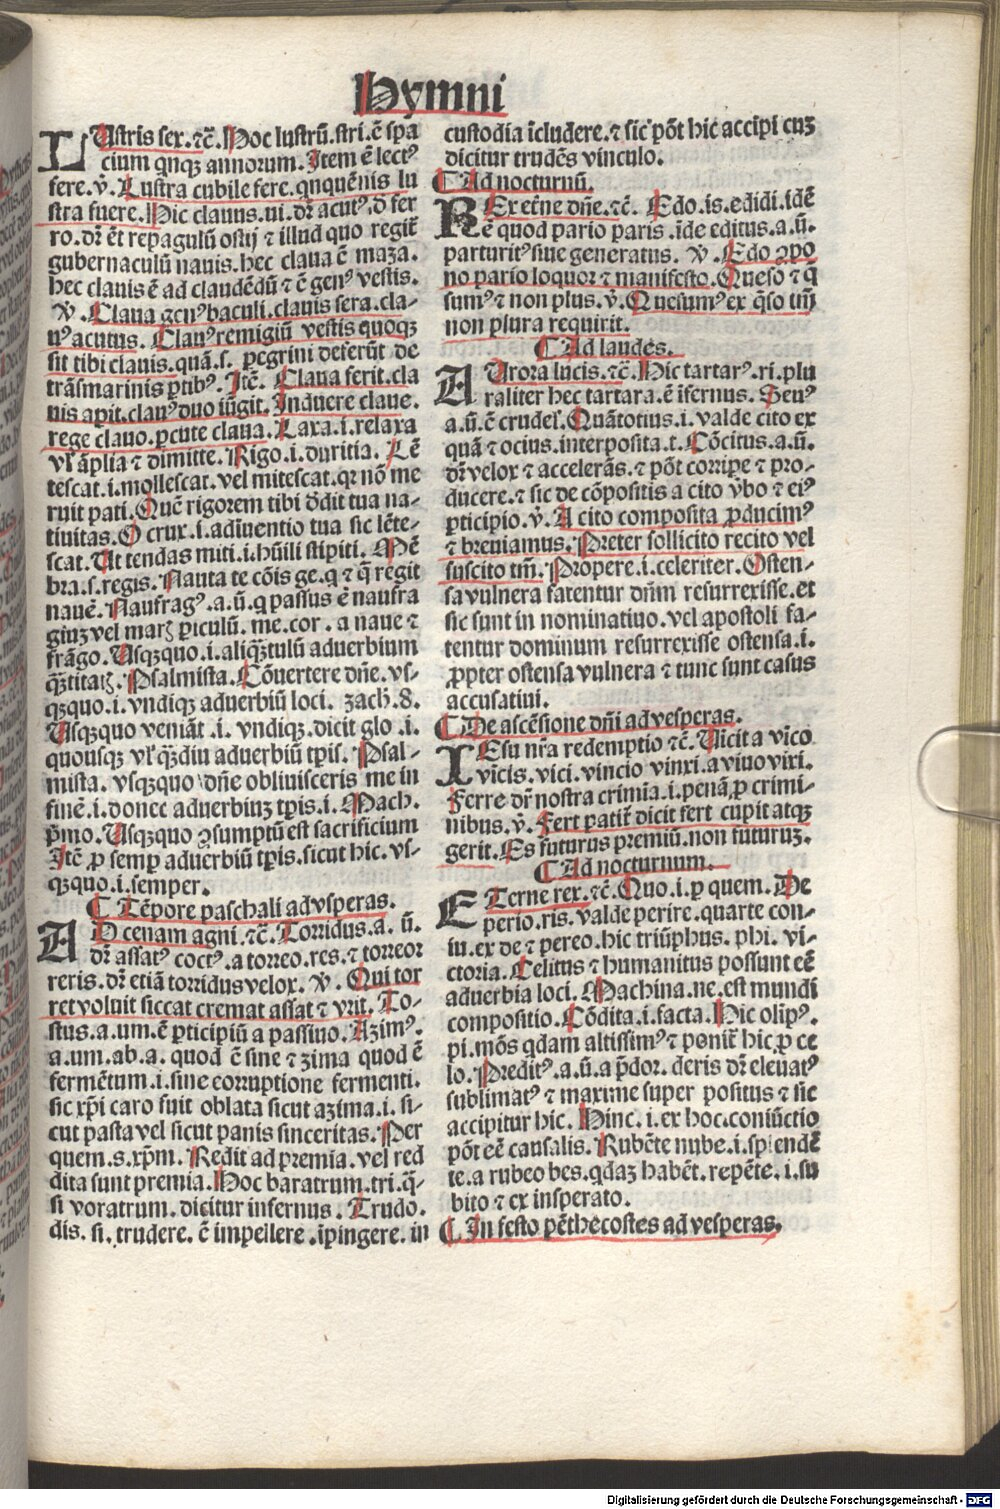 Hymni
LUstris sex.⁊c̄.Hoc lustrū.stri.ē spa
cium qnqꝫ annorum.Item ē lectꝰ
fere.v̄.Lustra cubile fere.qnquēnis lu
stra fuere.Hic clauus.ui.dr̄ acutꝰ.d̄ fer
ro.dr̄ ēt repagulū ostij ⁊ illud quo regit̄
gubernaculū nauis.hec claua ē maza.
hec clauis ē ad claudēdū ⁊ ē genꝰ vestis.
v̄.Claua genꝰ baculi.clauis sera.cla-
uꝰ acutus.Clauꝰ remigiū vestis quoqꝫ
sit tibi clauis.quā.s.pegrini deferūt de
trāsmarinis ptibꝰ.Itē.Claua ferit.cla
uis apit.clauꝰ duo iūgit.Induere claue.
rege clauo.pcute claua.Laxa.i.relaxa
vl̄ āplia ⁊ dimitte.Rigo.i.duritia.Lē
tescat.i.mollescat.vel mitescat.qr nō me
ruit pati.Quē rigorem tibi d̄dit tua na-
tiuitas.O crux.i.adiuentio tua sic lēte-
scat.Ut tendas miti.i.hūili stipiti.Mē
bra.s.regis.Nauta te cōis ge.q ⁊ q̄ regit
nauē.Naufragꝰ.a.ū.q passus ē naufra
giuꝫ vel marꝭ piculū.me.cor.a naue ⁊
frāgo.Usqꝫquo.i.aliqꝫtulū aduerbium
qꝫtitatꝭ.Psalmista.Cōuertere dn̄e.vs-
qꝫquo.i.vndiqꝫ aduerbiū loci. zach.8.
Usqꝫquo veniāt .i. vndiqꝫ.dicit glo .i.
quousqꝫ vl̄ qꝫdiu aduerbiū tpis. Psal-
mista. vsqꝫquo dn̄e obliuisceris me in
finē.i.donec aduerbiuꝫ tpis.i.Mach.
pmo.Usqꝫquo ꝯsumptū est sacrificium
Itē.p semp aduerbiū tpis.sicut hic.vs-
qꝫquo.i.semper.
¶ Tēpore paschali ad vsperas.
AD cenam agni.⁊c̄.Torridus.a.ū.
dr̄ assatꝰ coctꝰ.a torreo.res.⁊ torreor
reris.dr̄ etiā torridus velox. v̄.Qui tor
ret voluit siccat cremat assat ⁊ vrit.To-
stus.a.um.ē pticipiū a passiuo.Azimꝰ.
a.um.ab.a. quod ē sine ⁊ zima quod ē
fermētum.i.sine corruptione fermenti.
sic xp̄i caro fuit oblata sicut azima.i.si-
cut pasta vel sicut panis sinceritas.Per
quem.s.xp̄m.Redit ad premia.vel red
dita sunt premia.Hoc baratrum.tri.q̄-
si voratrum.dicitur infernus. Trudo.
dis.si.trudere.ē impellere .ipingere. in
custodia icludere.⁊ sic pōt hic accipi cuꝫ
dicitur trudēs vinculo.
¶Ad nocturnū.
REx etn̄e dn̄e.⁊c̄. Edo.is.edidi.idē
ē quod pario paris.ide editus.a.ū.
parturitꝰ siue generatus. v̄.Edo ꝯpo
no pario loquor ⁊ manifesto.Queso ⁊ q̄
sumꝰ ⁊ non plus.v̄.Quesumꝰ ex q̄so tm̄
non plura requirit.
¶ Ad laudes.
AUrora lucis.⁊c̄.Hic tartarꝰ.ri.plu
raliter hec tartara.ē ifernus.Seuꝰ
a.ū.ē crudel̄.Quātotius.i.valde cito ex
quā ⁊ ocius.interposita.t. Cōcitus.a.ū.
dr̄ velox ⁊ accelerās.⁊ pōt corripe ⁊ pro-
ducere.⁊ sic de cōpositis a cito v̄bo ⁊ eiꝰ
pticipio.v̄.A cito composita pducimꝰ
⁊ breuiamus.Preter sollicito recito vel
suscito tm̄.Propere.i.celeriter.Osten-
sa vulnera fatentur dn̄m resurrexisse.et
sic sunt in nominatiuo.vel apostoli fa-
tentur dominum resurrexisse ostensa.i.
ppter ostensa vulnera ⁊ tunc sunt casus
accusatiui.
¶De ascēsione dn̄i ad vesperas.
IEsu nr̄a redemptio ⁊c̄.Uicit a vico
vicis.vici.vincio vinxi.a viuo vixi.
Ferre dr̄ nostra crimīa.i.penā p crimi-
nibus.v̄.Fert patit̄ dicit fert cupit atqꝫ
gerit.Es futurus premiū.non futuruꝫ.
¶Ad nocturnum.
ETerne rex.⁊c̄.Quo.i.p quem.De
perio.ris.valde perire.quarte con-
iu.ex de ⁊ pereo.hic triūphus.phi. vi-
ctoria.Celitus ⁊ humanitus possunt eē
aduerbia loci.Machina.ne.est mundi
compositio.Cōdita.i.facta.Hic olipꝰ.
pi.mōs qdam altissimꝰ ⁊ ponit̄ hic p ce
lo.Preditꝰ.a.ū.a p̄dor.deris dr̄ eleuatꝰ
sublimatꝰ ⁊ maxime super positus ⁊ sic
accipitur hic.Hinc.i.ex hoc.coniūctio
pōt eē causalis.Rubēte nube.i.splendē
te.a rubeo bes.qdaꝫ habēt.repēte.i.su
bito ⁊ ex insperato.
¶In festo pēthecostes ad vesperas.
Digitalisierung gefördert durch die Deutsche Forschungsgemeinschaft - DFG